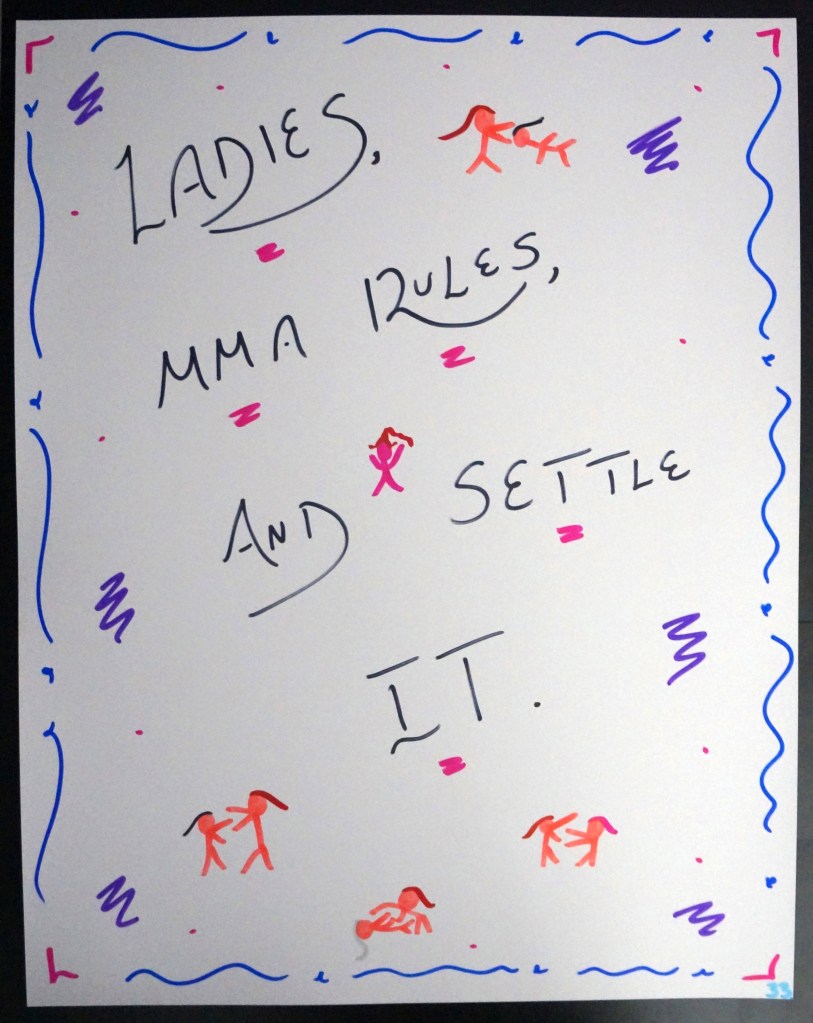 LADIES,
MMA RULES,
AND SETTLE
IT.
33